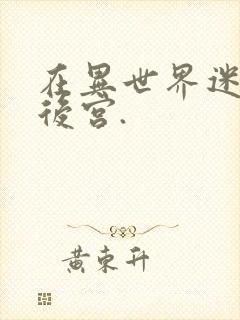 在異世界迷
後宮.
黄東升